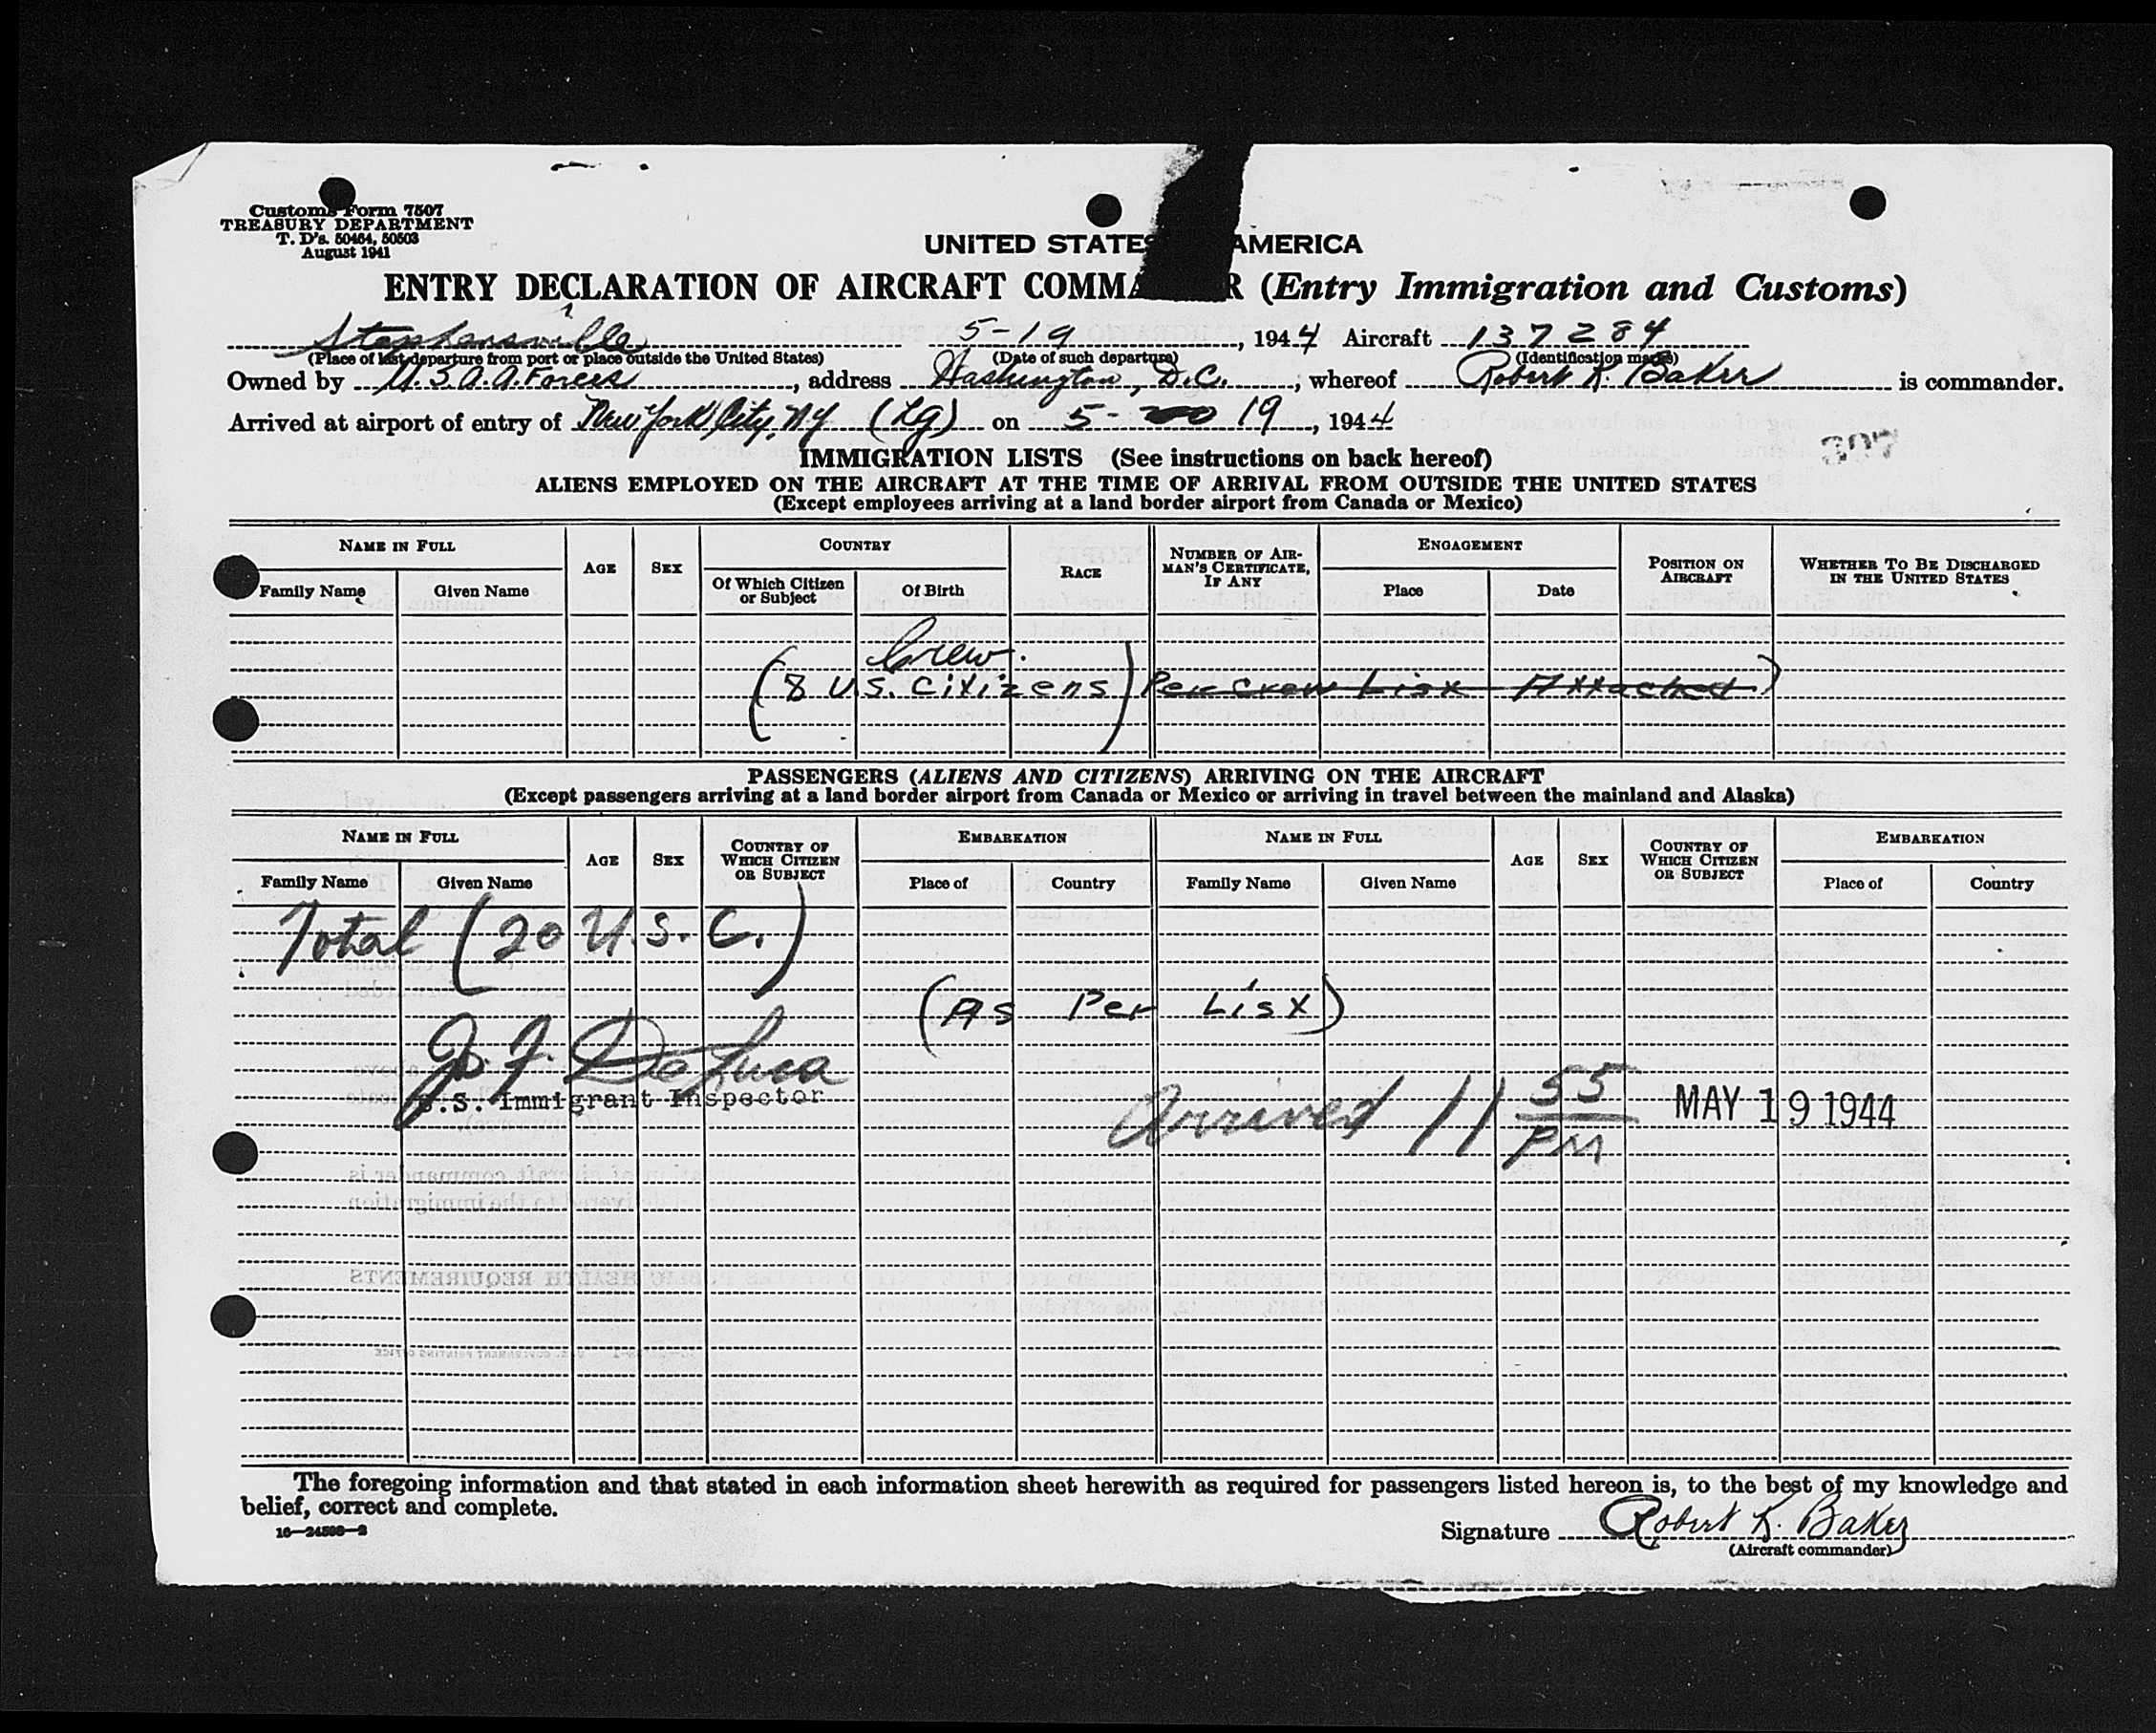 Customs Form 7507
TREASURY DEPARTMENT
T. D's. 50464, 50503
August 1941
UNITED STATES AMERICA
ENTRY DECLARATION OF AIRCRAFT COMMA R (Entry Immigration and Customs)
Stephensville 5-19, 1944 Aircraft 137284
(Place of last departure from port or place outside the United States) (Date of such departure) (Identification marks)
Owned by U.S.A.A. Forces, address Washington, D.C., whereof Robert K. Baker is commander.
Arrived at airport of entry of New York City, NY (Lg) on 5- 19, 1944
307
IMMIGRATION LISTS (See instructions on back hereof)
ALIENS EMPLOYED ON THE AIRCRAFT AT THE TIME OF ARRIVAL FROM OUTSIDE THE UNITED STATES
(Except employees arriving at a land border airport from Canada or Mexico)
NAME IN FULL AGE SEX COUNTRY RACE NUMBER OF AIRMAN'S CERTIFICATE, IF ANY ENGAGEMENT POSITION ON AIRCRAFT WHETHER TO BE DISCHARGED IN THE UNITED STATES
Family Name Given Name Of Which Citizen or Subject Of Birth Place Date
Crew.
(8 U.S. Citizens) Per Crew List Attached)
PASSENGERS (ALIENS AND CITIZENS) ARRIVING ON THE AIRCRAFT
(Except passengers arriving at a land border airport from Canada or Mexico or arriving in travel between the mainland and Alaska)
NAME IN FULL AGE SEX COUNTRY OF WHICH CITIZEN OR SUBJECT EMBARKATION NAME IN FULL AGE SEX COUNTRY OF WHICH CITIZEN OR SUBJECT EMBARKATION
Family Name Given Name Place of Country Family Name Given Name Place of Country
Total (20 U.S.C.)
(As Per List)
Jo. J. De Luca
U.S. Immigrant Inspector
Arrived 11 55 PM MAY 19 1944
The foregoing information and that stated in each information sheet herewith as required for passengers listed hereon is, to the best of my knowledge and
belief, correct and complete.
16—24593—2
Signature Robert K. Baker
(Aircraft commander)